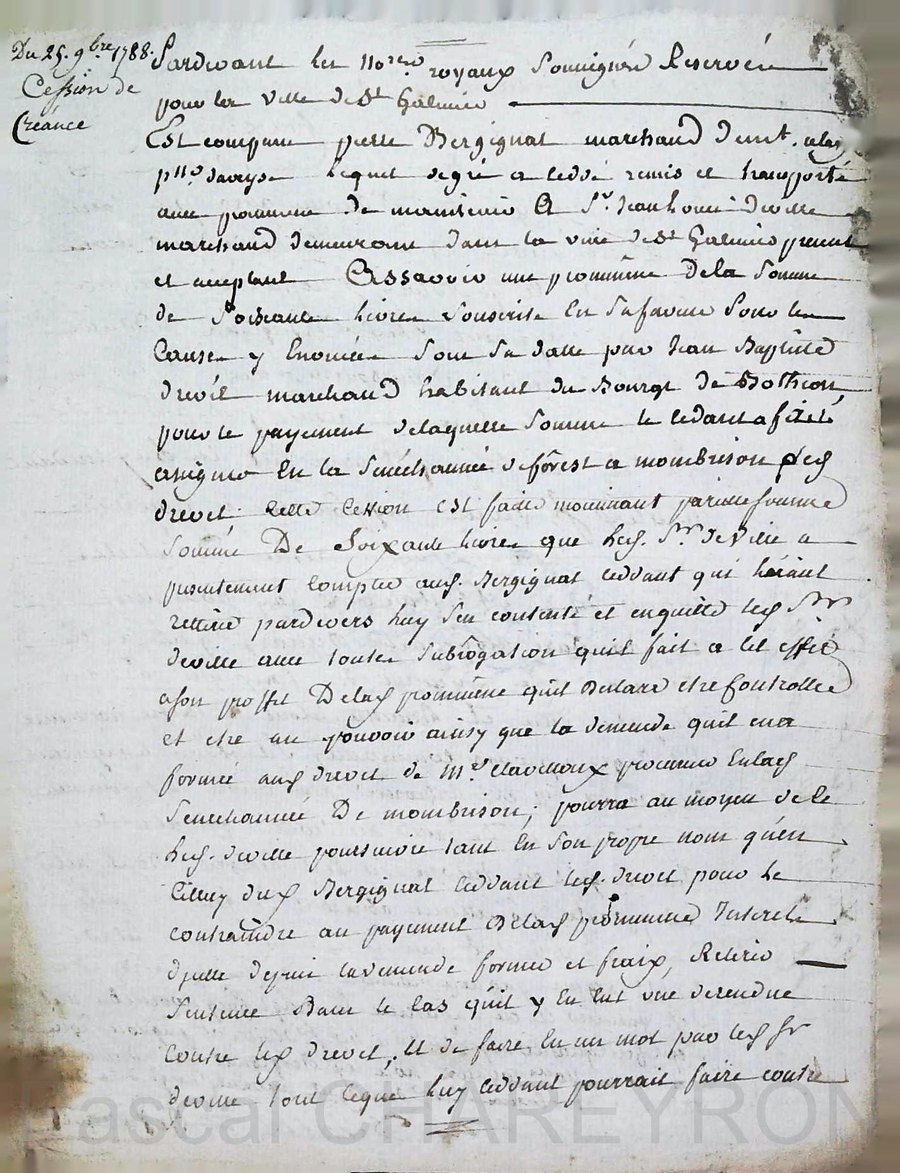 Du 25. 9bre 1788.
Cession de
Créance
Pardevant les Nores royaux soussignés Reservés
pour la ville de St Galmier
Est comparu pierre Bergignat marchand demt. 
lequel de gré a ceddé remis et transporté
avec promesse de maintenir A Sr. Jean deville
marchand demeurant dans la ville de St Galmier present
et acceptant Assavoir une promesse de la somme
de soixante livres souscrite En sa faveur sous les
Causes y Enoncées sous sa datte par Jean Baptiste
drevet marchand habitant du Bourgt de Bothéon
pour le payement de laquelle somme le cedant a fait
assigner En la senechaussée de forest a mombrison led
drevet. Cette Cession est faitte moiennant pareille
somme De soixante livres que led. Sr. de Ville a
presentement Compté aud. Bergignat Ceddant qui
rettiré pardevers luy s'en contente et en quitte led Sr
deville avec toutes subrogation quil fait a cet effet
a son proffit De lad promesse quil Declare etre Controllée
et etre au pouvoir ainsy que la demande quil en a
formée aud drevet de Me procureur En lad
senechaussée De mombrison; pourra au moyen de ce
led. deville poursuivre tant En son propre nom qu'en
Celluy dud Bergignat Ceddant led. drevet pour le
Contraindre au payement De lad promesse Interets
d'icelle depuis la demande formée et fraix, Retirer
sentence Dans le Cas qu'il y En Eut une de rendue
Contre led drevet, Et de faire En un mot par led sr
deville tout ceque luy Ceddant pourrait faire contre
Pascal CHAREYRON